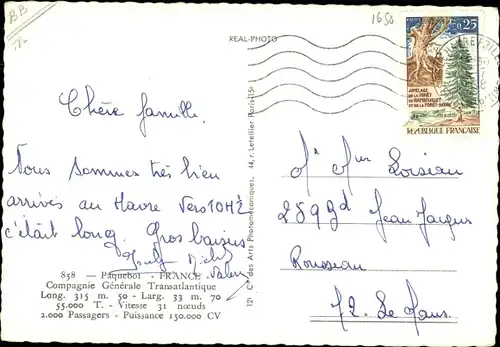 BB
1650
REAL-PHOTO
0,25
JUMELAGE
DE LA FORÊT
DE RAMBOUILLET
ET DE LA FORÊT NOIRE
RÉPUBLIQUE FRANÇAISE
Chère famille
Nous sommes très bien
arrivés au Havre vers 10H½
c'était long. Gros baisers
Michel
858 — Paquebot - FRANCE
Compagnie Générale Transatlantique
Long. 315 m. 50 - Larg. 33 m. 70
55.000 T. - Vitesse 31 nœuds
2.000 Passagers - Puissance 150.000 CV
des Arts Photomécaniques, 44, r. Letellier Paris-15e
M. Mme Loiseau
289 Jean Jacques
Rousseau
72. Le Mans